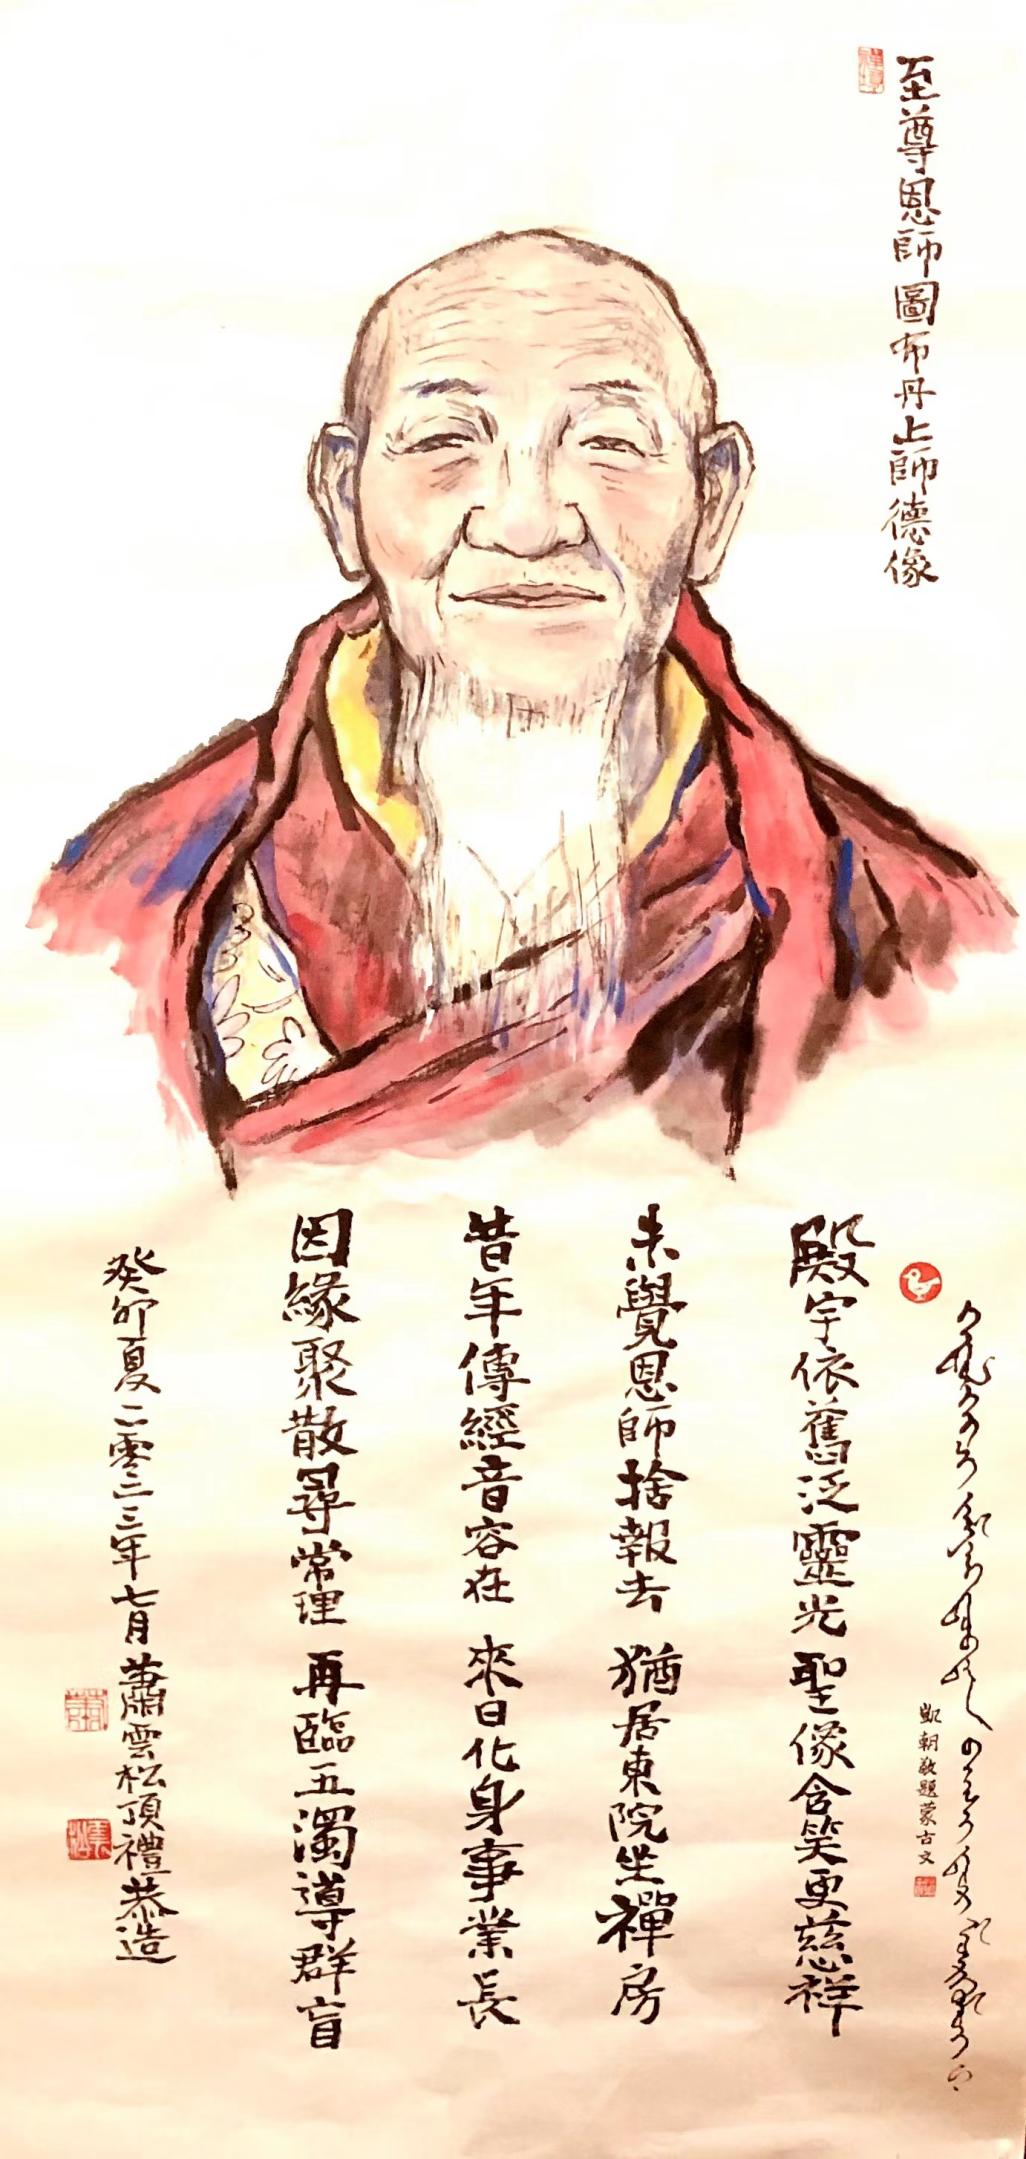 至尊恩師圖布丹上師德像
凱朝敬題蒙古文
殿宇依舊泛靈光 聖像含笑更慈祥
未覺恩師捨報去 猶居東院坐禪房
昔年傳經音容在 來日化身事業長
因緣聚散尋常理 再臨五濁導群盲
癸卯夏二零二三年七月蕭雲松頂禮恭造